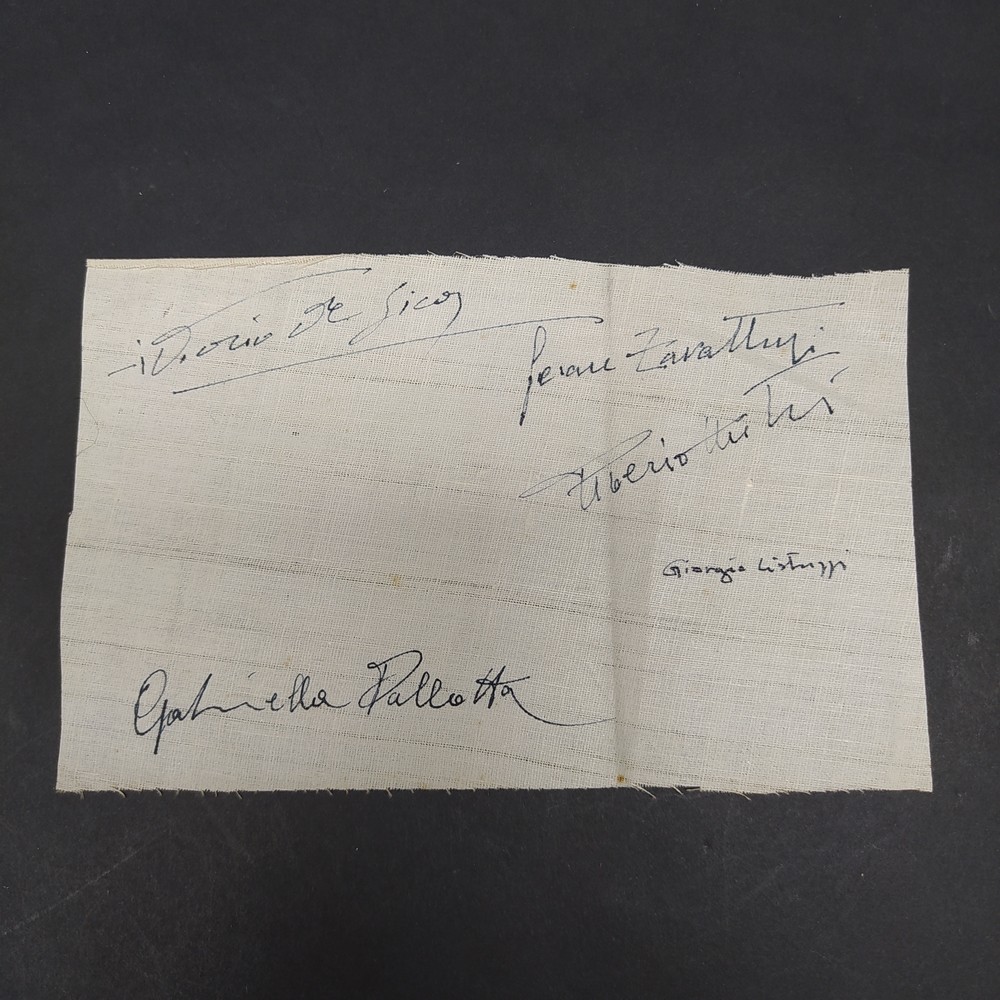 Vittorio De Sica
Cesare Zavattini
Tiberio Mitri
Giorgio Listuzzi
Gabriella Pallotta